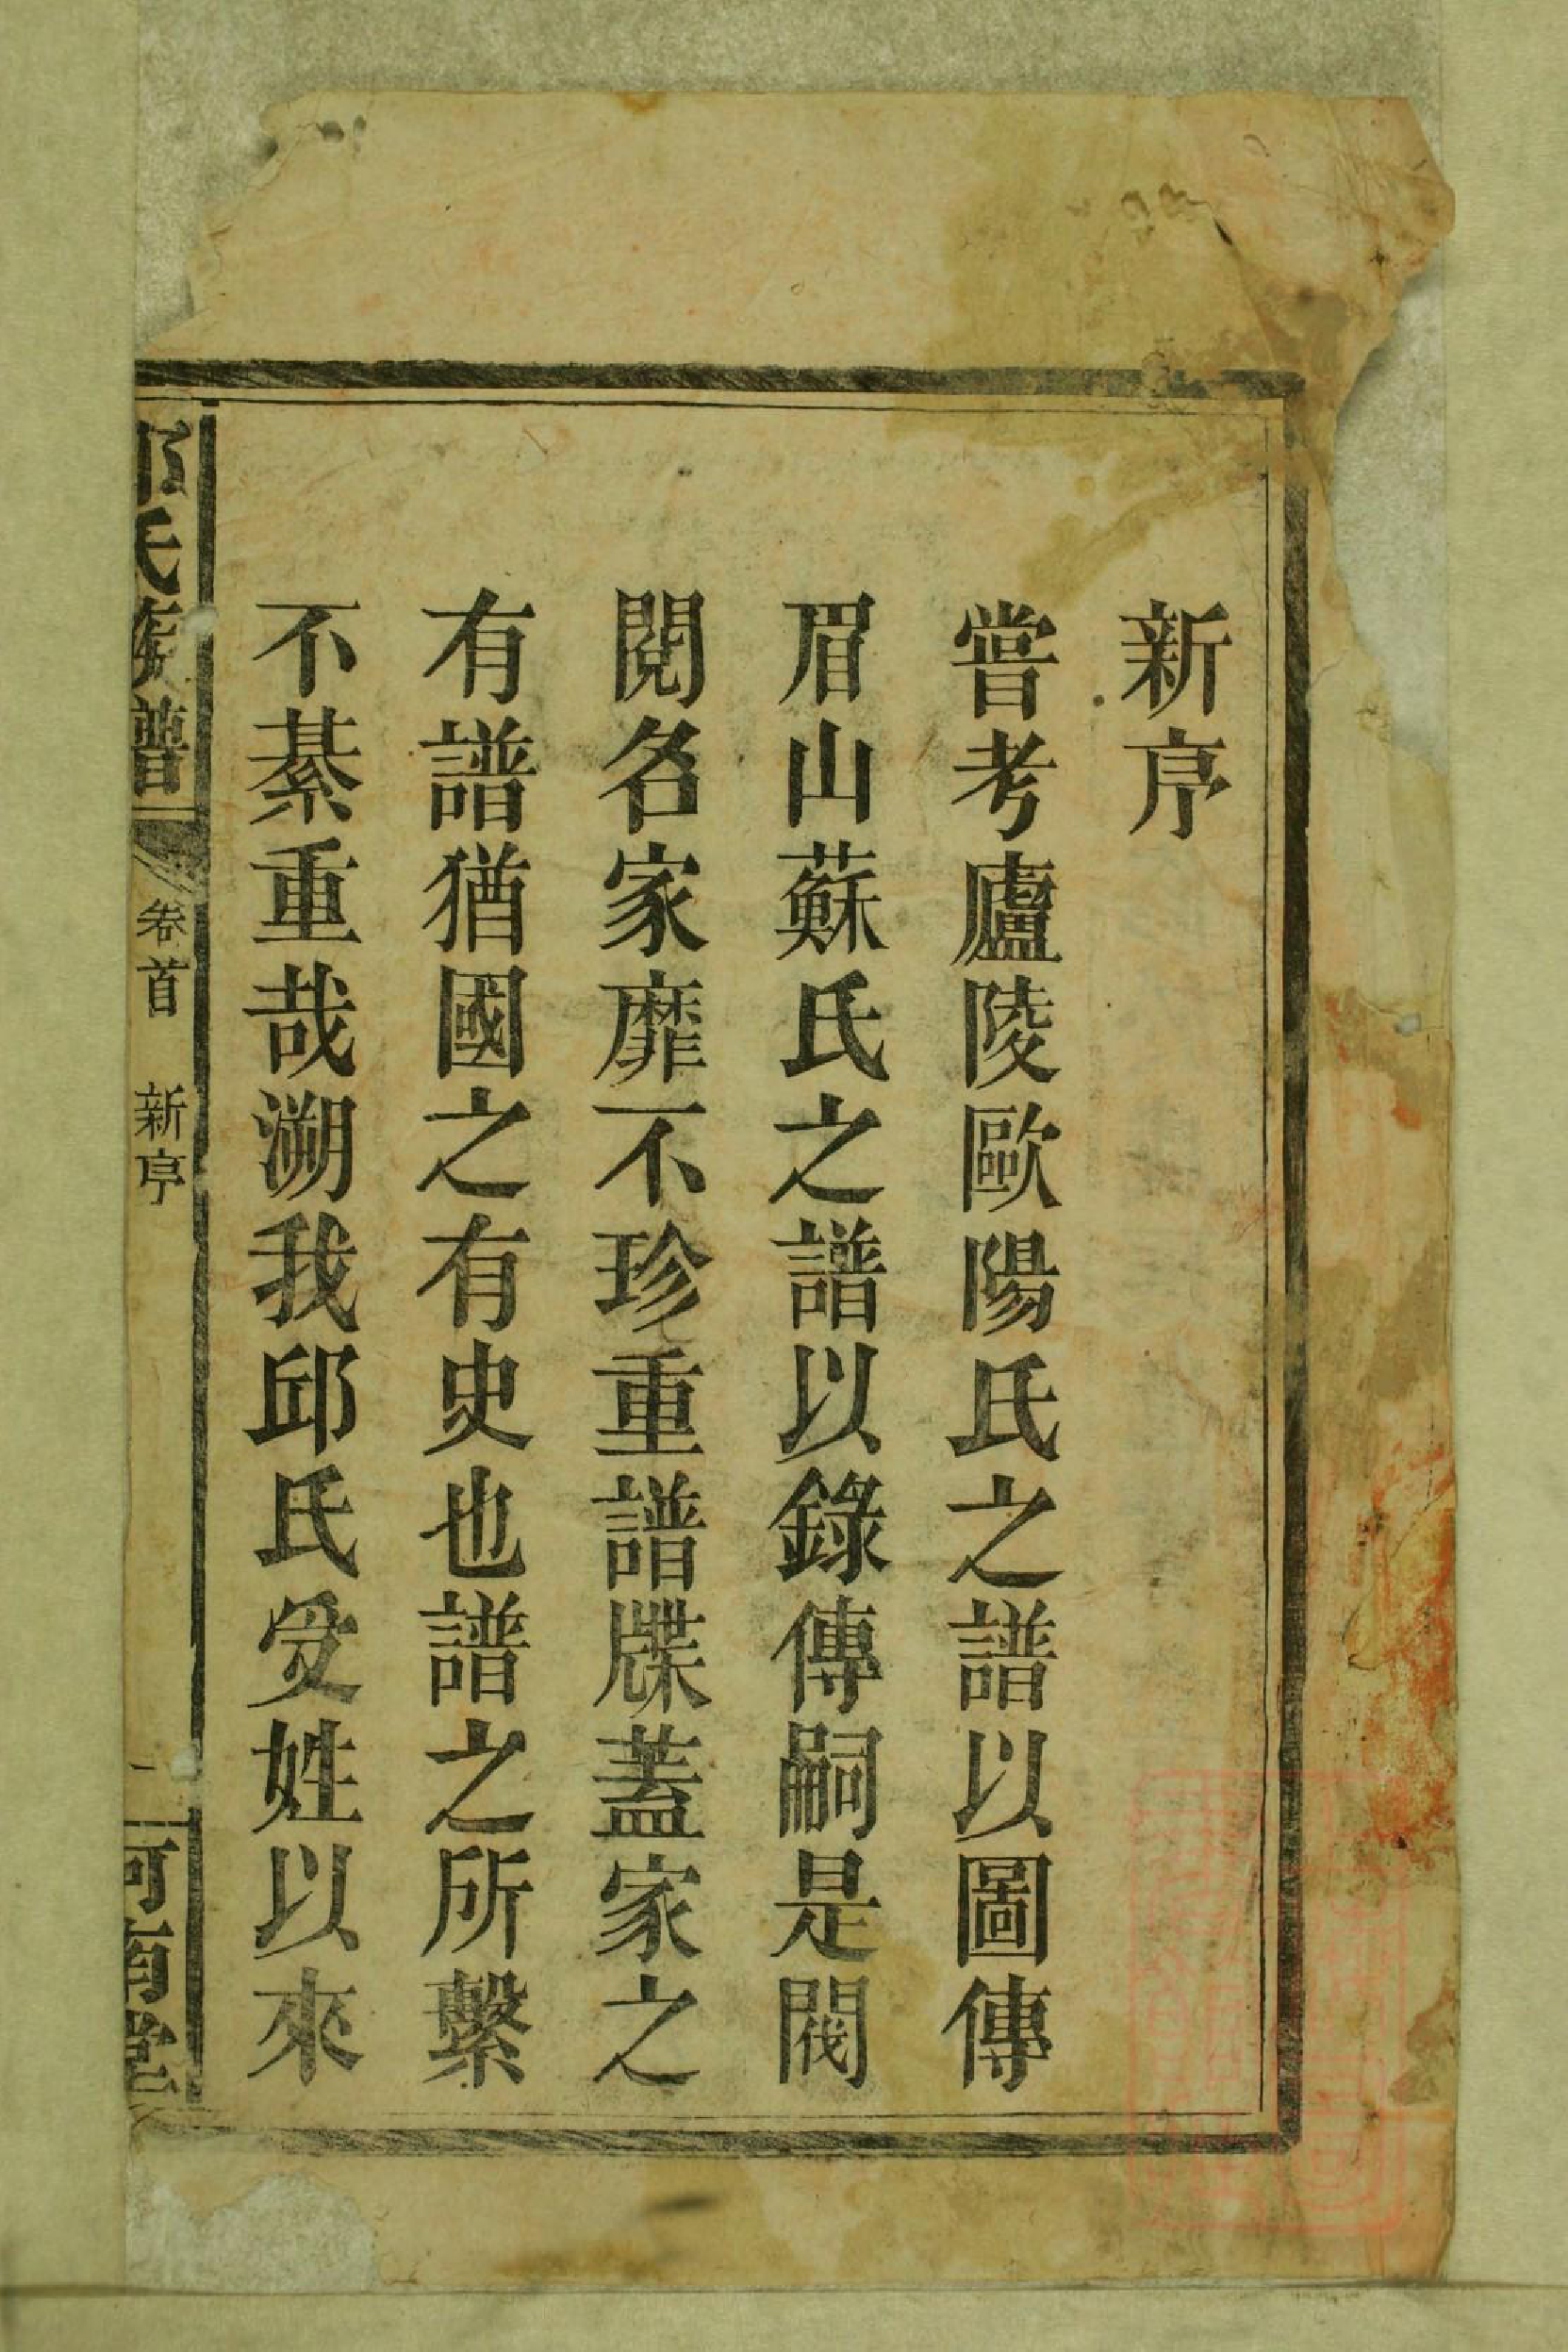 新序
嘗考廬陵歐陽氏之譜以圖傳
眉山蘇氏之譜以錄傳嗣是閥
閱名家靡不珍重譜牒蓋家之
有譜猶國之有史也譜之所繫
不綦重哉溯我邱氏受姓以來
邱氏族譜
卷首 新序
一
河南堂